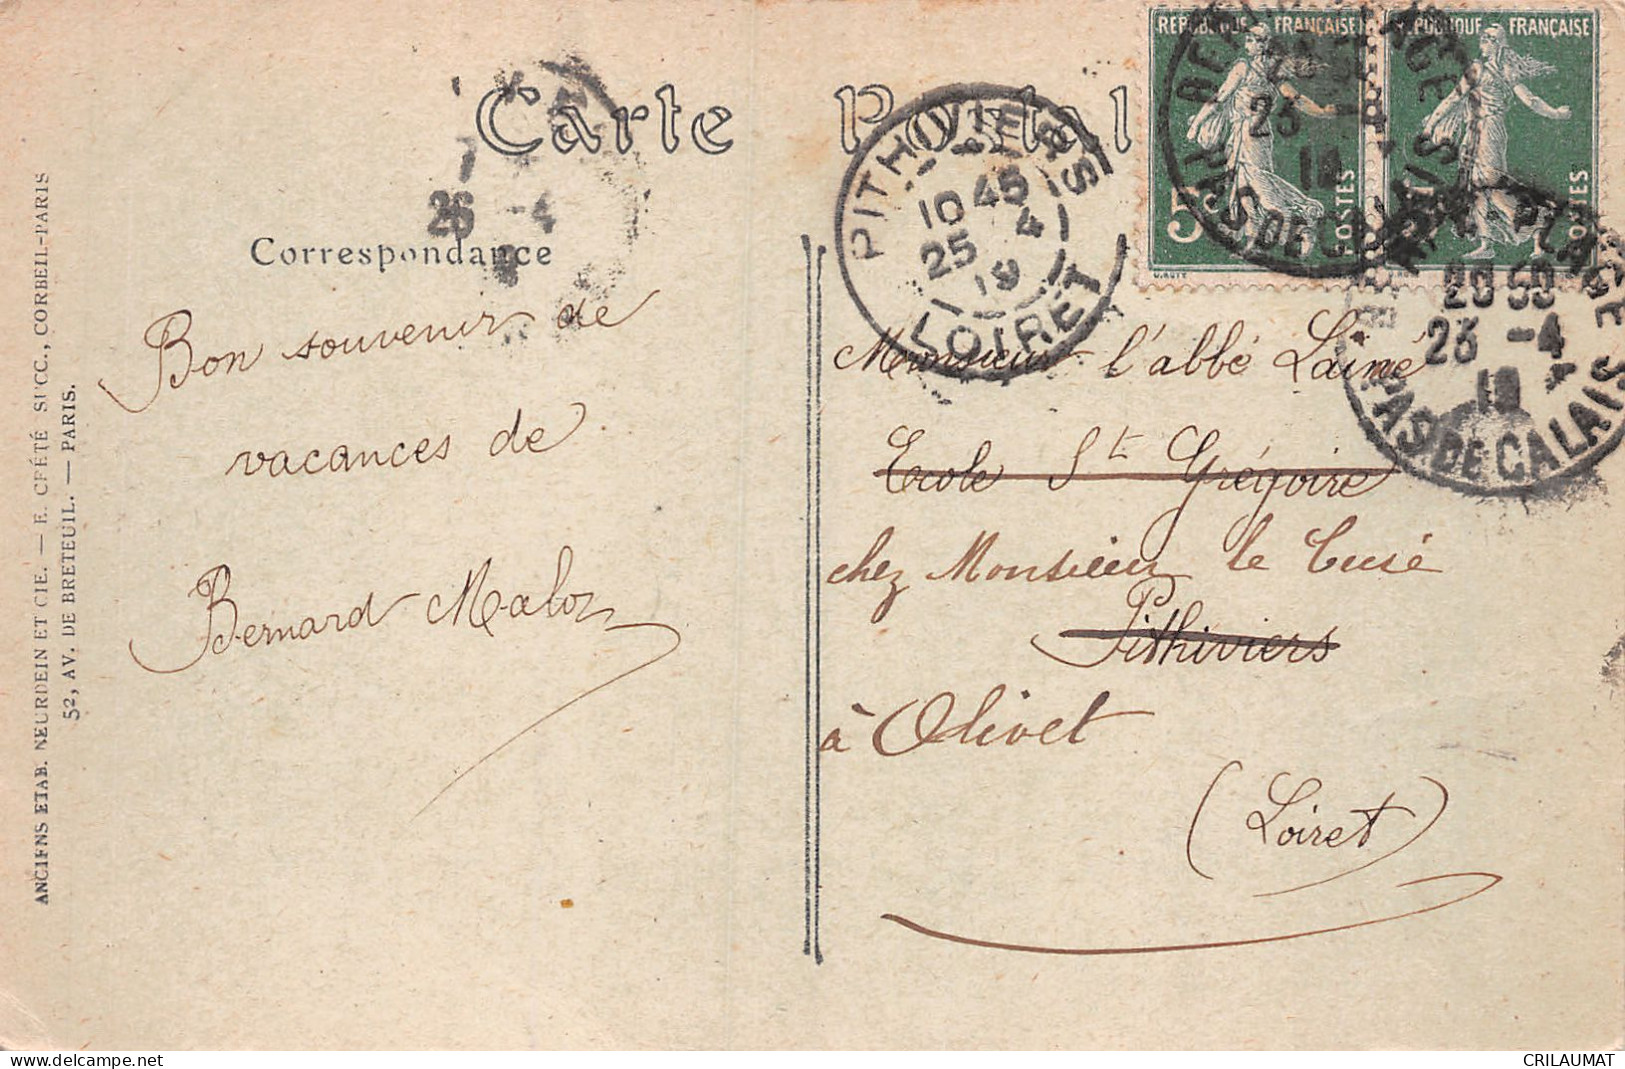 Carte Postal
RÉPUBLIQUE FRANÇAISE
5c
POSTES
RÉPUBLIQUE FRANÇAISE
POSTES
PLAGE
PAS DE CALAIS
23
PITHIVIERS
10 45
25 4
19
LOIRET
PLAGE
20 50
23 -4
19
PAS DE CALAIS
26 -4
Correspondance
Bon souvenir de
vacances de
Bernard Maloz
Monsieur l'abbé Lainé
Ecole St Grégoire
chez Monsieur le Curé
Pithiviers
à Olivet
(Loiret)
ANCIENS ETAB. NEURDEIN ET CIE. — E. CRÉTÉ SUCC., CORBEIL-PARIS
52, AV. DE BRETEUIL. — PARIS.
www.delcampe.net
CRILAUMAT